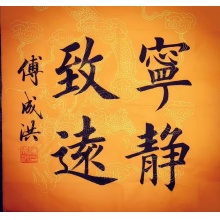 寧静
致遠
傅成洪